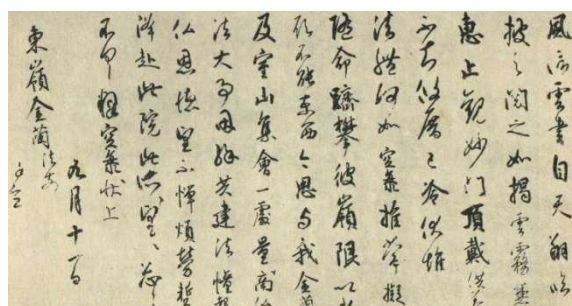 風信雲書自天翔臨
披之閲之如揭雲霧兼
恵止觀妙門頂戴供養
不知攸厝已冷伏惟
法體何如空海推常擬
随命躋攀彼嶺限以少
願不能東西今思与我金蘭
及室山集會一處量商
法大事因縁共建法幢報
仏恩徳望不憚煩勞蹔
降赴此院此所望々忩
不具釋空海状上
九月十一日
東嶺金蘭法前